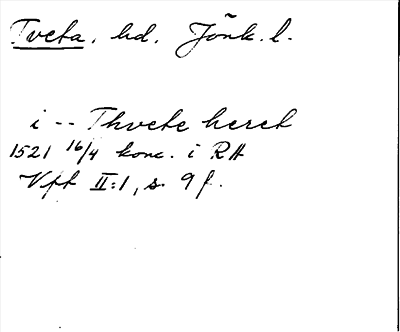 Tveta, hd. Jönk. l.
i -- Thvete heret
1521 16/4 konc. i RA
Vft II:1, s. 9 f.